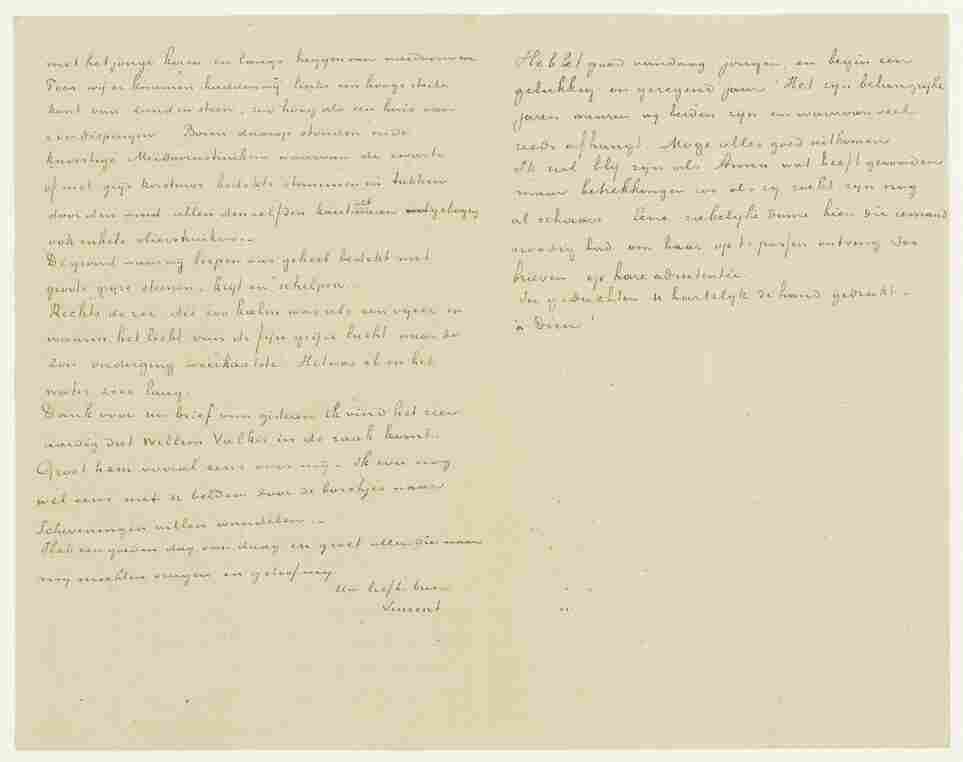 met het jonge koren en langs heggen van meidoornen
Toen wij er kwamen hadden wij links een hooge steile
kant van zand en steen, zoo hoog als een huis van
twee diepingen Boven daarop stonden oude
knoestige Meidoornstruiken waarvan de zwarte
of met grijs korstmos bedekte stammen en takken
door den wind allen denzelfden kant uit waren gebogen
ook enkele vlierstruiken.
De grond waar wij liepen was geheel bedekt met
groote grijze steenen, krijt en schelpen.
Rechts de zee die zoo kalm was als een vijver en
waarin het licht van de fijne grijze lucht waar de
zon onderging weerkaatste. Het was eb en het
water zeer laag.
Dank voor uw brief van gisteren Ik vind het zeer
aardig dat Willem Valkis in de zaak komt.
Groet hem vooral eens voor mij. Ik zou nog
wel eens met U beiden door de boschjes naar
Scheveningen willen wandelen.
Heb een goeden dag van daag en groet allen die naar
mij mochten vragen en geloof mij
Uw liefh. broer
Vincent
Heb het goed vandaag jongen, en begin een
gelukkig en gezegend jaar! Het zijn belangrijke
jaren waarin wij beiden zijn en waarvan veel
reeds afhangt. Moge alles goed uitkomen
Ik zal blij zijn als Anna wat heeft gevonden
maar betrekkingen zoo als zij zoekt zijn nog
al schaarsch Eene ziekelijke Dame hier die iemand
noodig had om haar op te passen ontving 300
brieven op hare advertentie.
In gedachten U hartelijk de hand gedrukt.
à Dieu!